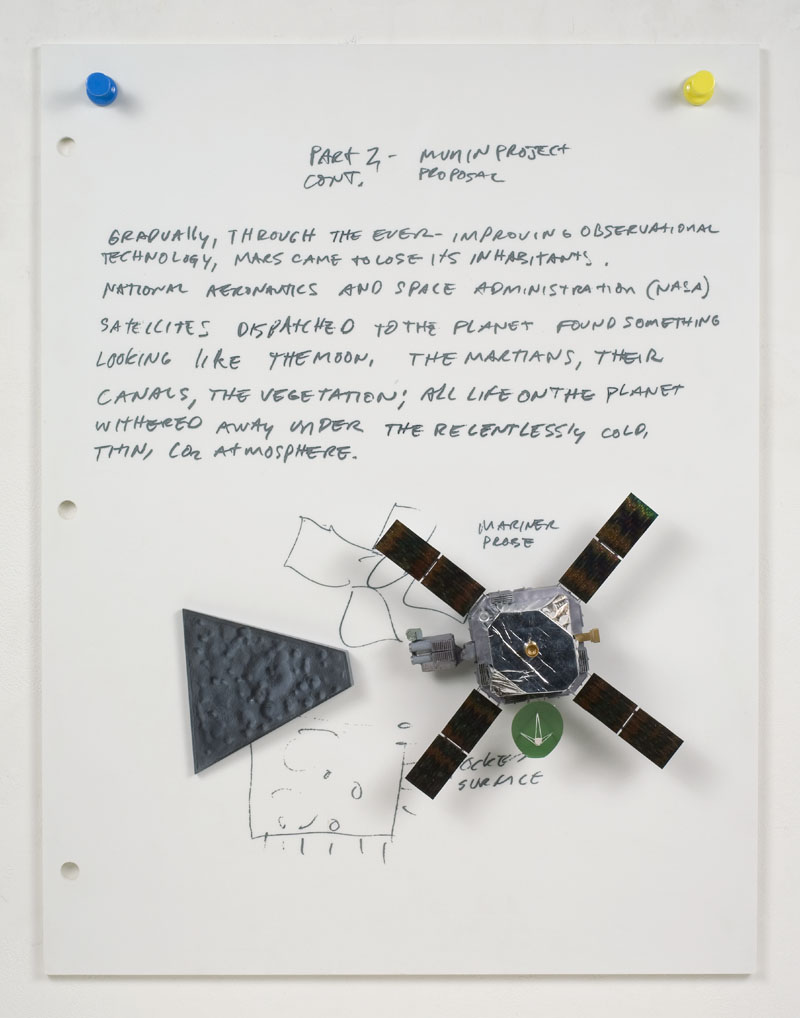 PART 2, - MUNIN PROJECT
CONT. PROPOSAL
GRADUALLY, THROUGH THE EVER-IMPROVING OBSERVATIONAL
TECHNOLOGY, MARS CAME TO LOSE ITS INHABITANTS.
NATIONAL AERONAUTICS AND SPACE ADMINISTRATION (NASA)
SATELLITES DISPATCHED TO THE PLANET FOUND SOMETHING
LOOKING LIKE THE MOON. THE MARTIANS, THEIR
CANALS, THE VEGETATION; ALL LIFE ON THE PLANET
WITHERED AWAY UNDER THE RELENTLESSLY COLD,
THIN, CO2 ATMOSPHERE.
MARINER
PROBE
SURFACE